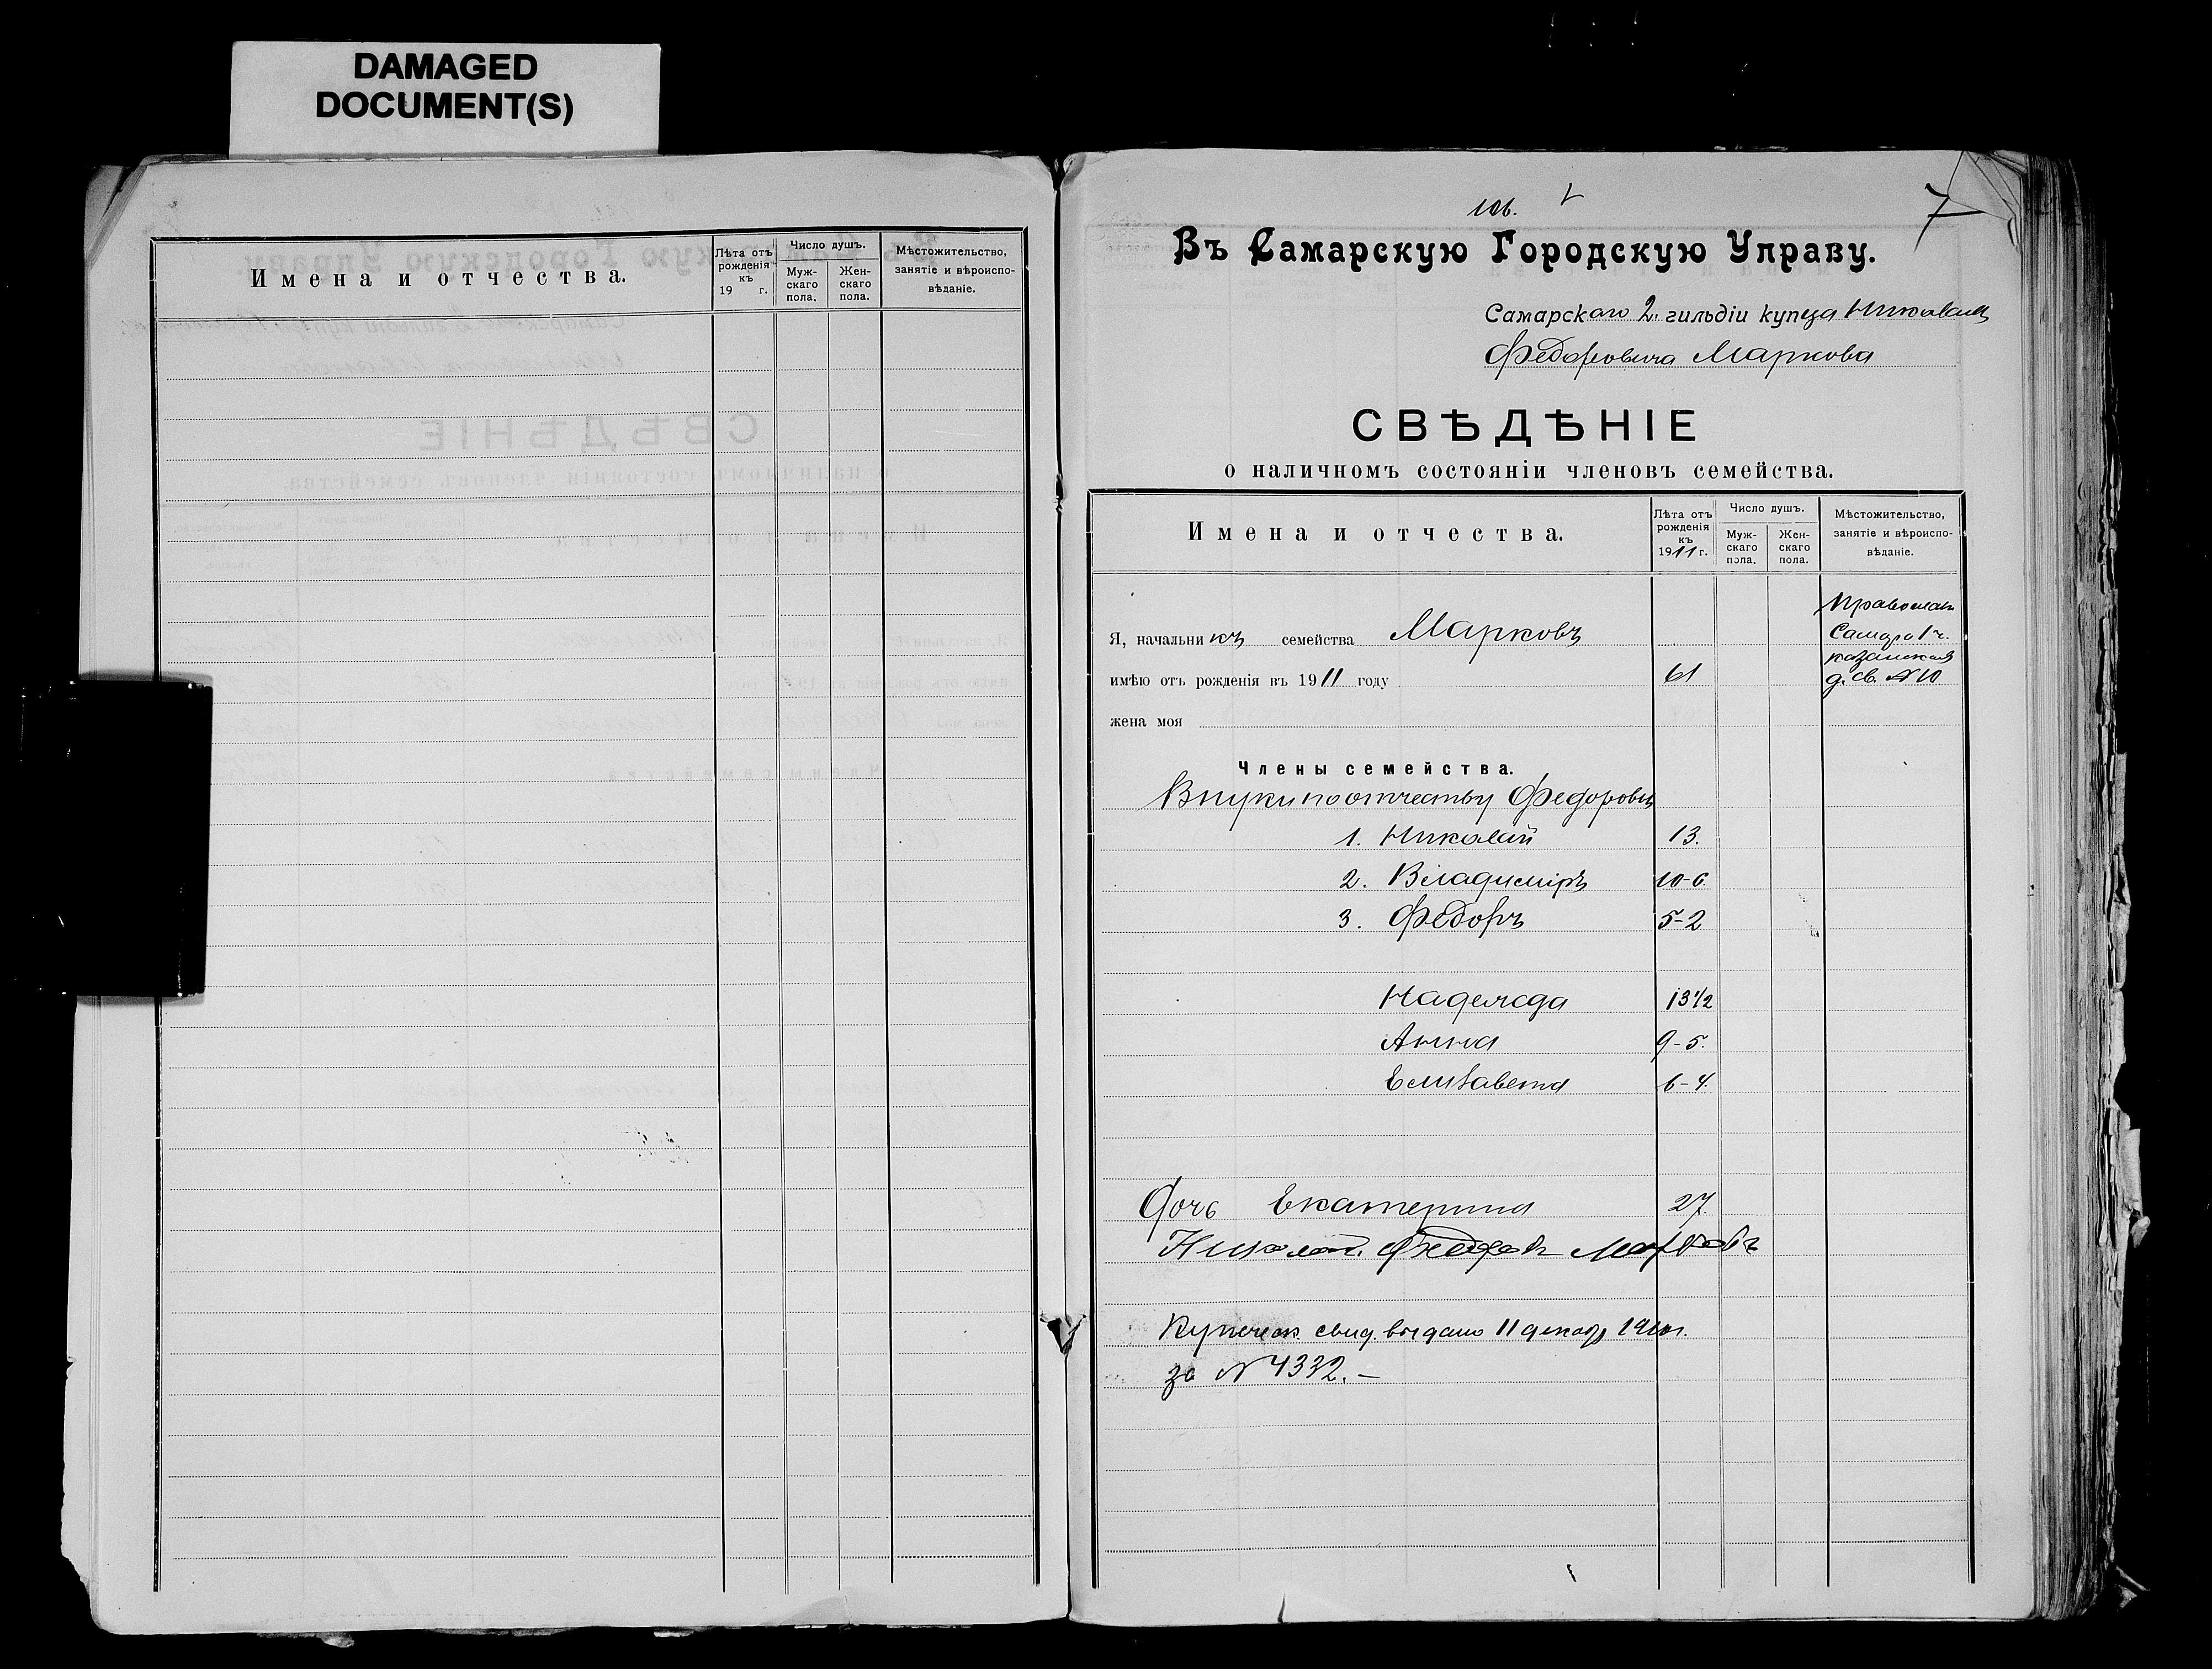 DAMAGED
DOCUMENT(S)
Имена и отчества.
Лѣта отъ рожденія къ 19 г.
Число душъ.
Муж-скаго пола.
Жен-скаго пола.
Мѣстожительство, занятіе и вѣроиспо-вѣданіе.
7
Въ Самарскую Городскую Управу.
Самарскаго 2 гильдіи купца Николая
Федоровича Маркова
СВѢДѢНІЕ
о наличномъ состояніи членовъ семейства.
Имена и отчества.
Лѣта отъ рожденія къ 1911 г.
Число душъ.
Муж-скаго пола.
Жен-скаго пола.
Мѣстожительство, занятіе и вѣроиспо-вѣданіе.
Я, начальникъ семейства Марковъ
имѣю отъ рожденія въ 1911 году 61
Православн
Самара 1 ч.
Казанская
д. св. № 10
жена моя
Члены семейства.
Внуки по отчеству Федоровы
1. Николай 13.
2. Владиміръ 10-6.
3. Федоръ 5-2
Надежда 13 1/2
Анна 9-5.
Елизавета 6-4.
Дочь Екатерина 27.
Николай Федоров Марковъ
Купеческ. свид. выдано 11 декабр 1910 г.
за № 4332.-